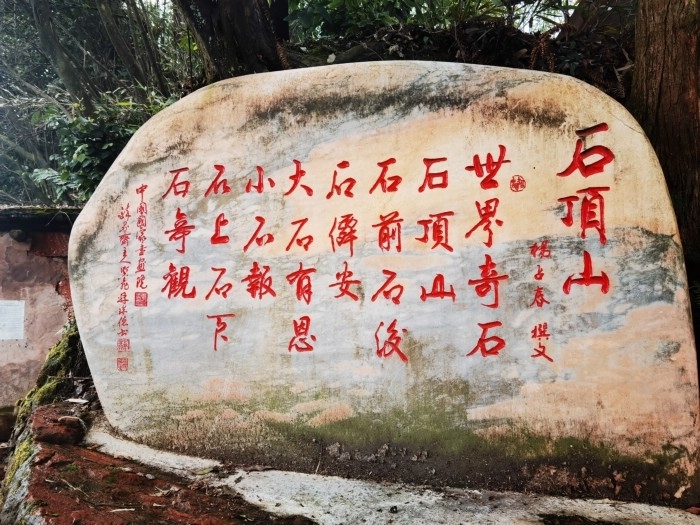 石頂山
楊占春 撰文
世界奇石
石頂山
石前石後
石僻安
大石有恩
小石報
石上石下
石奇觀
中國國家書畫院